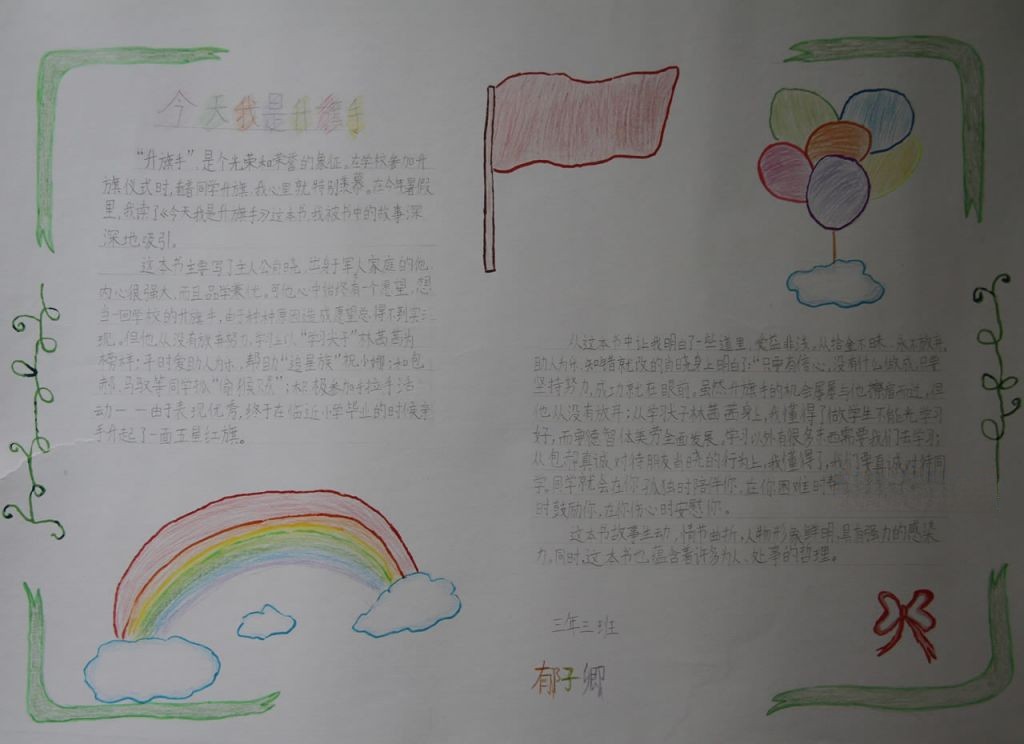 今天我是升旗手
“升旗手”,是个光荣和荣誉的象征。在学校参加升
旗仪式时,看着同学升旗,我心里就特别羡慕。在今年暑假
里,我读了《今天我是升旗手》这本书,我被书中的故事深
深地吸引。
这本书主要写了主人公肖晓,出身于军人家庭的他,
内心很强大,而且品学兼优。可他心中始终有一个愿望,想
当一回学校的升旗手,由于种种原因造成愿望总得不到实
现。但他从没有放弃努力,学习上以“学习尖子”林茜茜为
榜样;平时爱助人为乐,帮助“追星族”祝小娜和包
郝、马驭等同学
动——由于表现优秀,终于在临近小学毕业的时候亲
手升起了一面五星红旗。
从这本书中让我明白了一些道理,爱岳非浅。从拾金不昧、永不放弃、
助人为乐、知错就改的肖晓身上明白了:“只要有信心,没有什么做成,只要
坚持努力,成功就在眼前。虽然升旗手的机会屡屡与他擦肩而过,但
他从没有放弃;从学习尖子林茜茜身上,我懂得了做学生不能光学习
好,而要德智体美劳全面发展,学习以外有很多东西需要我们去学习;
从包郝真诚对待朋友肖晓的行为上,我懂得了,我们要真诚对待同
学,同学就会在你孤独时陪伴你,在你困难时
时鼓励你,在你伤心时安慰你。
这本书故事生动,情节曲折,人物形象鲜明,具有强力的感染
力,同时,这本书也蕴含着许多为人、处事的哲理。
三年三班
郁子卿